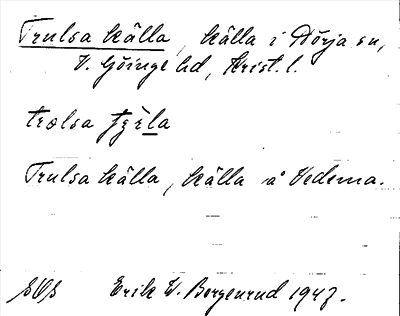 Trulsa källa, källa i Dörja sn,
V. Göinge hd, Krist. l.
trolsa
Trulsa källa, källa å Vedema.
Erik W. Bergenrud 1947.